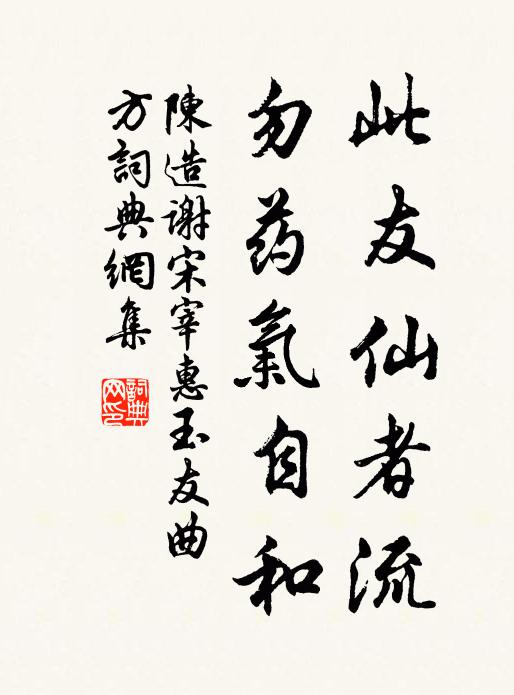 此友仙者流
勿药氣自和
陳造谢宋宰惠玉友曲
方詞典網集
詞典网印